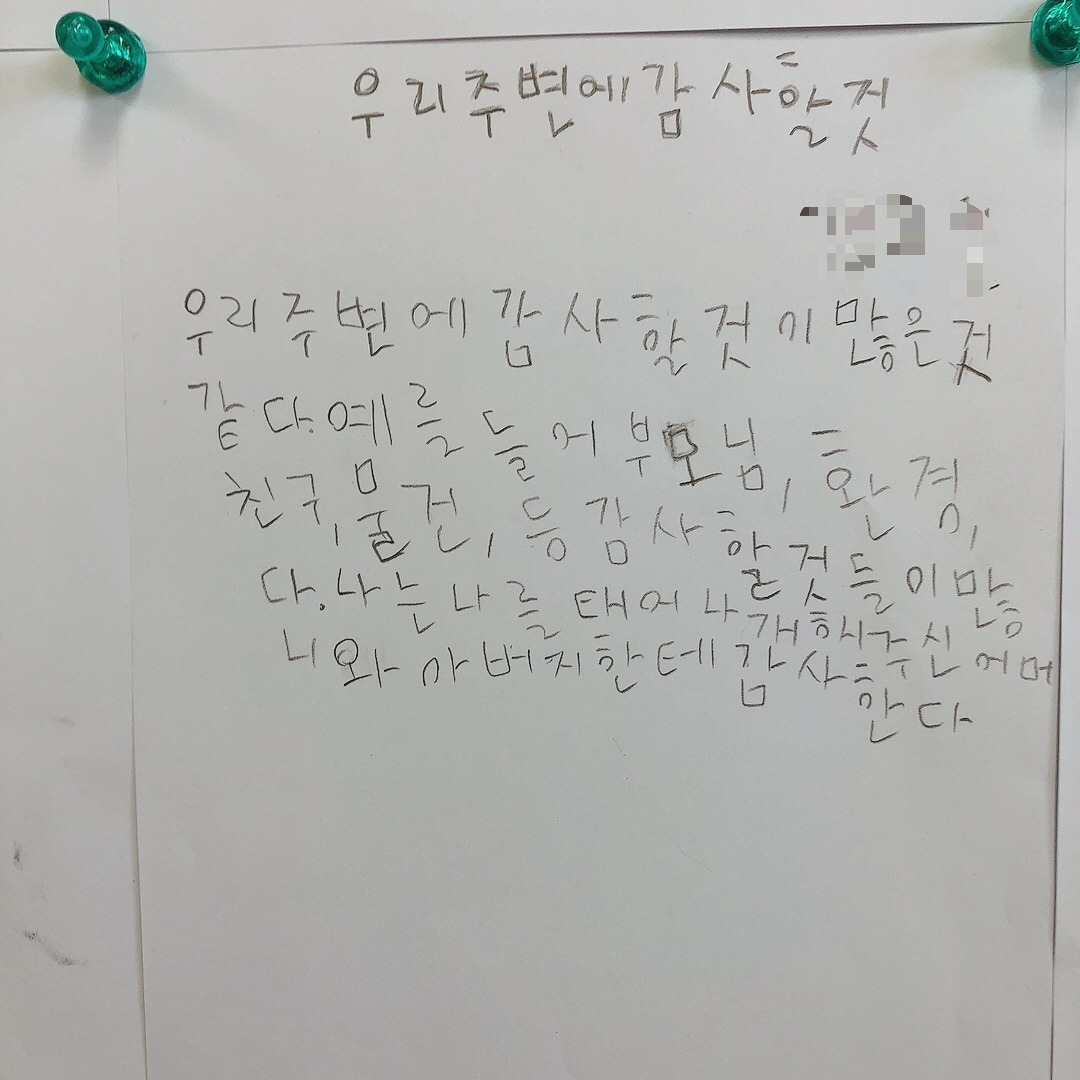 우리주변에감사할것
우리주변에감사할것이많은것
같다.예를들어부모님,환경,
친구,물건,등감사할것들이많
다.나는나를태어나게해주신어머
니와아버지한테감사한다